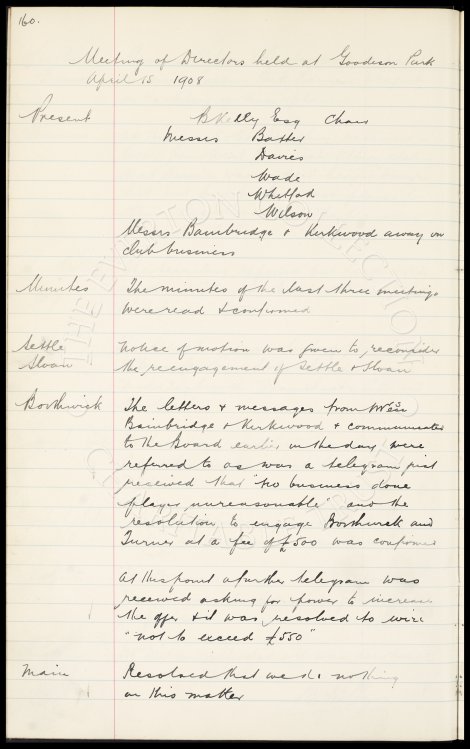 160.
Meeting of Directors held at Goodison Park
April 15 1908
Present
B Kelly Esq Chair
Messrs Baxter
Davies
Wade
Whitford
Wilson
Messrs Bainbridge & Kirkwood away on
club business
Minutes
The minutes of the last three meetings
were read & confirmed
Settle
Sloan
notice of motion was given to reconsider
the reengagement of Settle & Sloan
Borthwick
The letters & messages from Messrs
Bainbridge & Kirkwood & communicated
to the Board earlier in the day were
referred to as was a telegram just
received that "no business done
player unreasonable" and the
resolution to engage Borthwick and
Turner at a fee of £500 was confirmed
At this point a further telegram was
received asking for power to increase
the offer & it was resolved to wire
"not to exceed £550"
Main
Resolved that we do nothing
in this matter
THE EVERTON COLLECTION